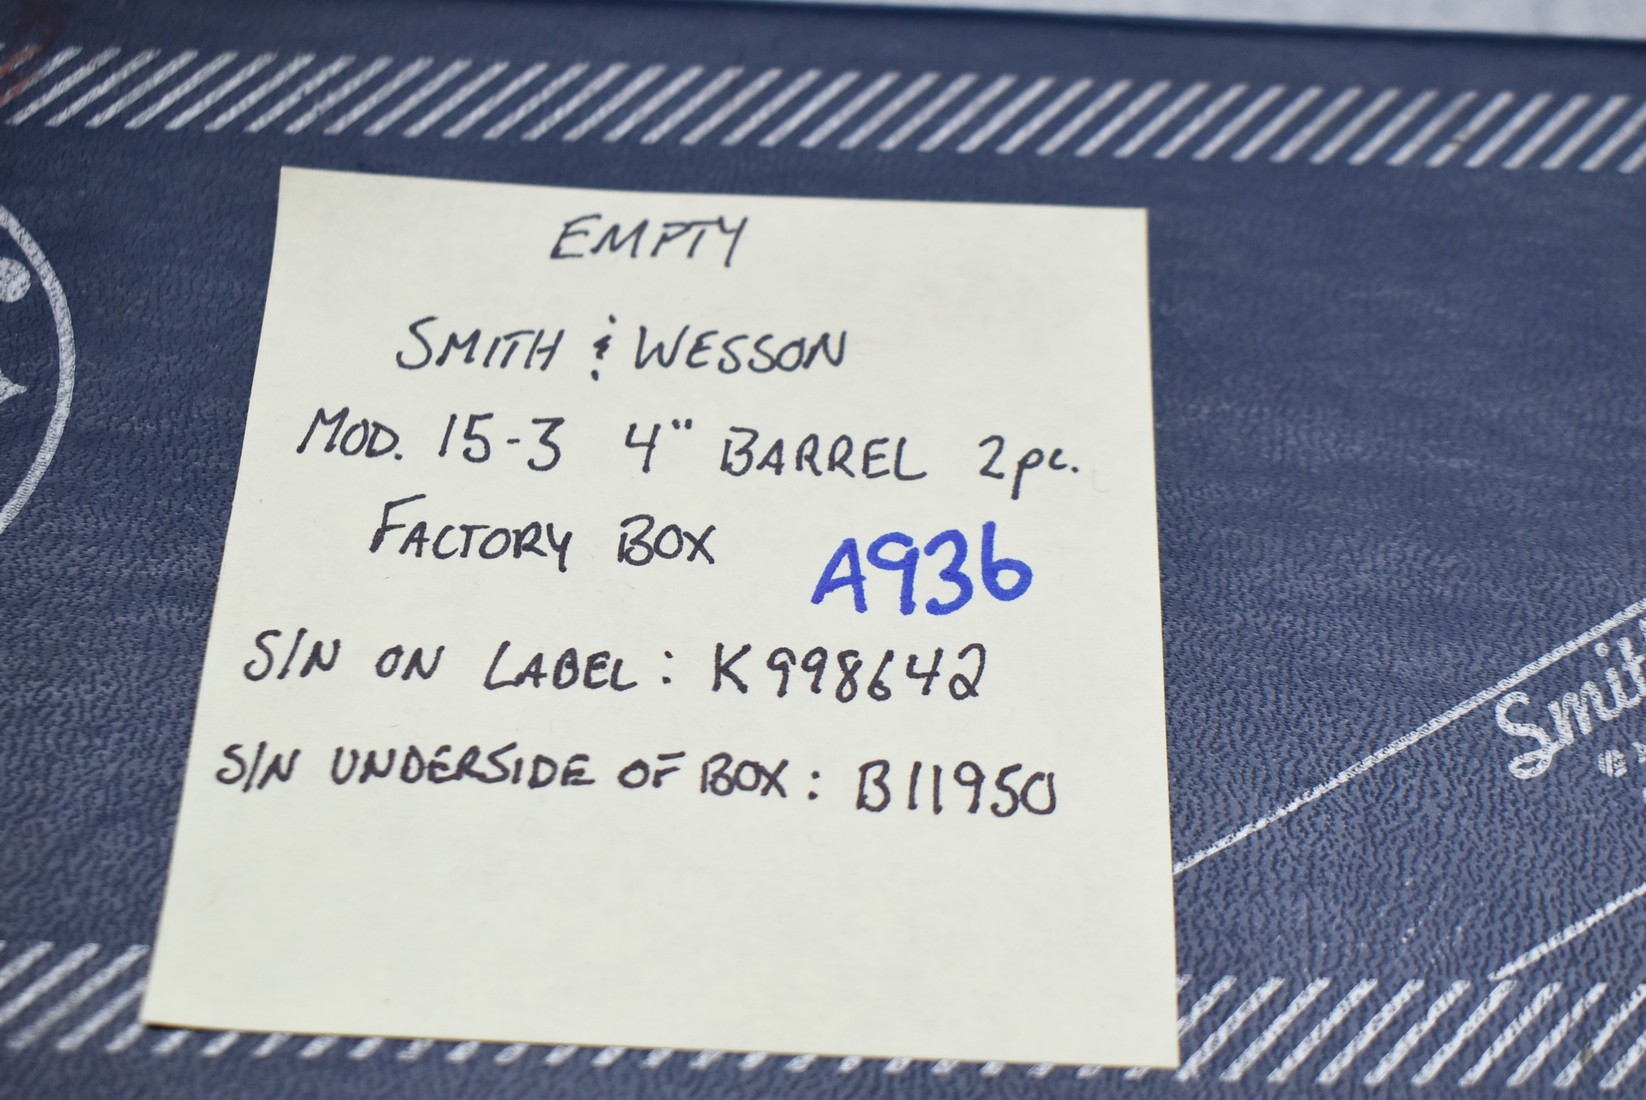 EMPTY
SMITH & WESSON
MOD. 15-3 4" BARREL 2pc.
FACTORY BOX
A936
S/N ON LABEL: K998642
S/N UNDERSIDE OF BOX: B11950